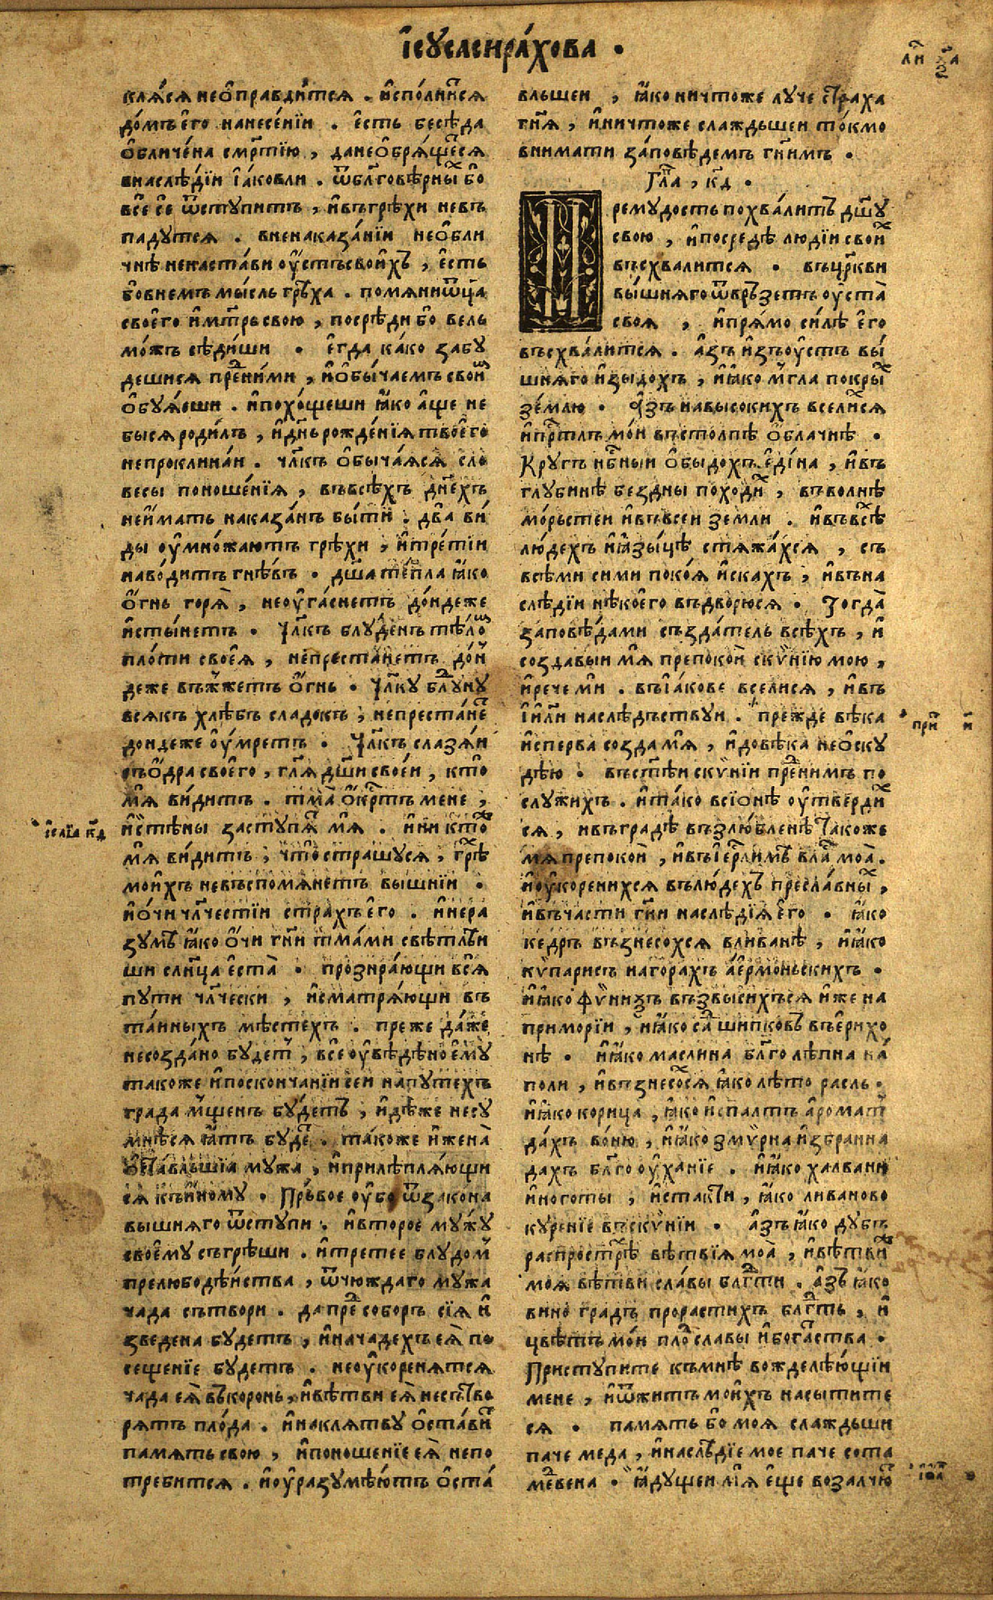 І҆су́са сира́хова .
клѧ́сѧ не ѡ҆правди́тсѧ . и҆спо́лнитсѧ
до́мъ е҆го̀ нанесе́нїи . е҆сть бесѣ́да
ѡ҆бличе́на сме҃ртїю , да не ѡ҆брѧ́щетсѧ
в наслѣ́дїи і҆а́ковли . ѿ бл҃говѣ́рныхъ бо
всѐ се ѿступитъ , и҆ въ грѣхи невъ
падутсѧ . в ненаказа́нїи не ѡ҆бли
чнѣ ненаста́ви оу҆стъ свои́хъ , е҆сть
бо в немъ мысль грѣха . помѧни ѿц҃а
своего и҆ мт҃рь свою , посрѣди бо вель
мо́жъ сѣди́ши . е҆гда ка́ко забу
дешисѧ пред ни́ми , и҆ ѡ҆бы́чаемъ свои́мъ
ѡ҆буѧ́еши . и҆ похо́щеши ꙗ҆ко а҆ще не
бысѧ роди́лъ , и҆ дн҃ь рожде́нїѧ твоего
непроклинаи . чл҃къ ѡ҆быча́ѧсѧ сло
весы поноше́нїѧ , въ всѣхъ дн҃ехъ
не и҆мать наказа́нъ бы́ти . два ви
ды оу҆мно́жаютъ грѣхи , и҆ тре́тїи
наво́дитъ гнѣвъ . дш҃а те́пла ꙗ҆ко
ѡ҆гнь горѧ̀ , не оу҆га́снетъ до́ндеже
и҆сты́нетъ . Чл҃къ блу́денъ тѣ́ломъ
пло́ти своеѧ̀ , непреста́нетъ до́н
деже въжже́тъ ѡ҆гнь . Чл҃ку блу́дну
всѧкъ хлѣбъ сладокъ , непреста́нетъ
дондеже оу҆мретъ . Чл҃къ слазѧ́и
съ ѡ҆дра своего , гл҃ѧ дш҃и своеи , кто
мѧ̀ ви́дитъ . тма̀ ѡ҆кр҃тъ мене ,
и҆ стѣ́ны заступѧ́тъ мѧ . и҆ ни кто
мѧ видитъ , что страшусѧ , грѣхъ
мои́хъ невъспомѧ́нетъ вышнїи .
и҆ ѻ҆чи чл҃честїи стра́хъ е҆го . и҆ нера
зумѣ ꙗ҆ко ѻ҆чи гн҃и тма́ми свѣтлѣи
ши сл҃нца е҆ста̀ . прозира́ющи всѧ̀
пути чл҃чески , и҆ сматрѧ́ющи въ
та́йныхъ мѣ́стехъ . преже да́же
несозда́но будетъ , всѐ оу҆вѣ́дѣно е҆му
такоже и҆ поскончанїи сеи на путехъ
града мще́нъ бу́детъ , и҆дѣже несу
мнѣсѧ ꙗ҆тъ буде . та́коже и҆ жена̀
ѡ҆ста́вльшїа мужа , и҆ прилѣплѧ́ющи
сѧ къ и҆ному . Пръвое оу҆бо ѿ закона
вышнѧго ѿступи . и҆ второе му́жу
своему съгрѣши . и҆ третее блудомъ
прелюбодѣ́йства , ѿ чюждаго му́жа
чада сътвори . да пред соборъ сїѧ и҆
зведена будетъ , и҆ на чадехъ е҆ѧ̀ по
сещенїе будетъ . не оу҆коренѧтсѧ
чада е҆ѧ̀ въ корень , и҆ вѣтви е҆ѧ̀ несътво
рѧтъ пло́да . и҆ на клѧтву ѡ҆ста́витъ
памѧть свою , и҆ поношенїе е҆ѧ̀ непо
требитсѧ . и҆ оу҆разумѣютъ ѡ҆ста́
вльшеи , ꙗ҆ко ничтоже луче стра́ха
гн҃ѧ , и҆ ничтоже слаждьшеи то́кмо
внимати за́повѣдемъ гн҃имъ .
Гл҃а , к҃д .
Премудость похва́литъ дш҃у
свою , и҆ посредѣ людїи свои́хъ
въсхвалитсѧ . въ цр҃кви
вы́шнѧго ѿврь́зетъ оу҆ста̀
своѧ , и҆ прѧ́мо си́лѣ е҆го
въсхва́литсѧ . а҆зъ и҆зъ оу҆стъ вы́
шнѧго и҆зыдохъ , и҆ ꙗ҆ко мъгла покры́хъ
зе́млю . А҆зъ на высокихъ вселихсѧ
и҆ прт҃лъ мо́и въ столпѣ ѡ҆блачнѣ .
Кругъ нбн҃ыи ѡ҆быдохъ е҆ди́на , и҆ въ
глубинѣ бездны походихъ , въ волнѣ
мо́рьстеи и҆ въ всеи земли . и҆ въ всѣхъ
лю́дехъ и҆ ꙗ҆зы́цѣ стѧжа́хсѧ , съ
всѣми сими поко́ѧ и҆скахъ , и҆ въ на
слѣдїи нѣкоего въдворюсѧ . Тогда̀
заповѣ́дами създатель всѣхъ , и҆
создавыи мѧ̀ препоко́и скѵ́нїю мою ,
и҆ рече ми . въ і҆а́кове вселисѧ , и҆ въ
і҆и҃ли наслѣдъствуи . прежде вѣка
и҆сперва созда мѧ , и҆ до вѣка не ѡ҆ску
дѣю . въ ст҃ѣи скѵнїи пред ни́мъ по
служихъ . и҆ та́ко в сїонѣ оу҆тверди́х
сѧ , и҆ въ градѣ възлю́бленѣ Такоже
мѧ препокои , и҆ въ і҆ер҃лимѣ власть моа̀ .
и҆ оу҆коренихсѧ въ лю́дехъ пресла́вныхъ ,
и҆ въ части гн҃и наслѣдїѧ е҆го . ꙗ҆ко
кедръ възнесохсѧ в лива́нѣ , и҆ ꙗ҆ко
кѵпарисъ на гора́хъ а҆ермо́ньскихъ .
и҆ ꙗ҆ко фѵниѯъ възвысихъсѧ и҆же на
приморїи , и҆ ꙗ҆ко сад шипковъ въ е҆рихо
нѣ . и҆ ꙗ҆ко маслина бл҃голѣпна на́
поли , и҆ възнесохсѧ ꙗ҆ко лѣто расль .
и҆ ꙗ҆ко корица , ꙗ҆ко и҆спалтъ а҆рома́т
дахъ во́ню , и҆ ꙗ҆ко змѵрна и҆збранна
дахъ бл҃гооу҆ханїе . и҆ ꙗ҆ко халвани
и҆ ноготы , и҆ стакти , ꙗ҆ко ливаново
куренїе въ скѵнїи . а҆зъ ꙗ҆ко дубъ
распрострѣ вѣтвїѧ моа̀ , и҆ вѣтвїи
моѧ вѣтви славы блг҃ти . а҆зъ ꙗ҆ко
вино градъ прорастихъ блг҃ть , и҆
цвѣтъ мо́и плод славы и҆ бога́ства .
Приступите къ мнѣ вожделѣющїи
мене , и҆ ѿ житъ мои́хъ насытите
сѧ . памѧть бо моѧ слаждьши
паче меда , и҆ наслѣдїе мое паче сота
медвена . ꙗ҆дущеи мѧ̀ е҆ще возалчютъ
і҆са́їа к҃д
при н҃
і҆ѡа҃